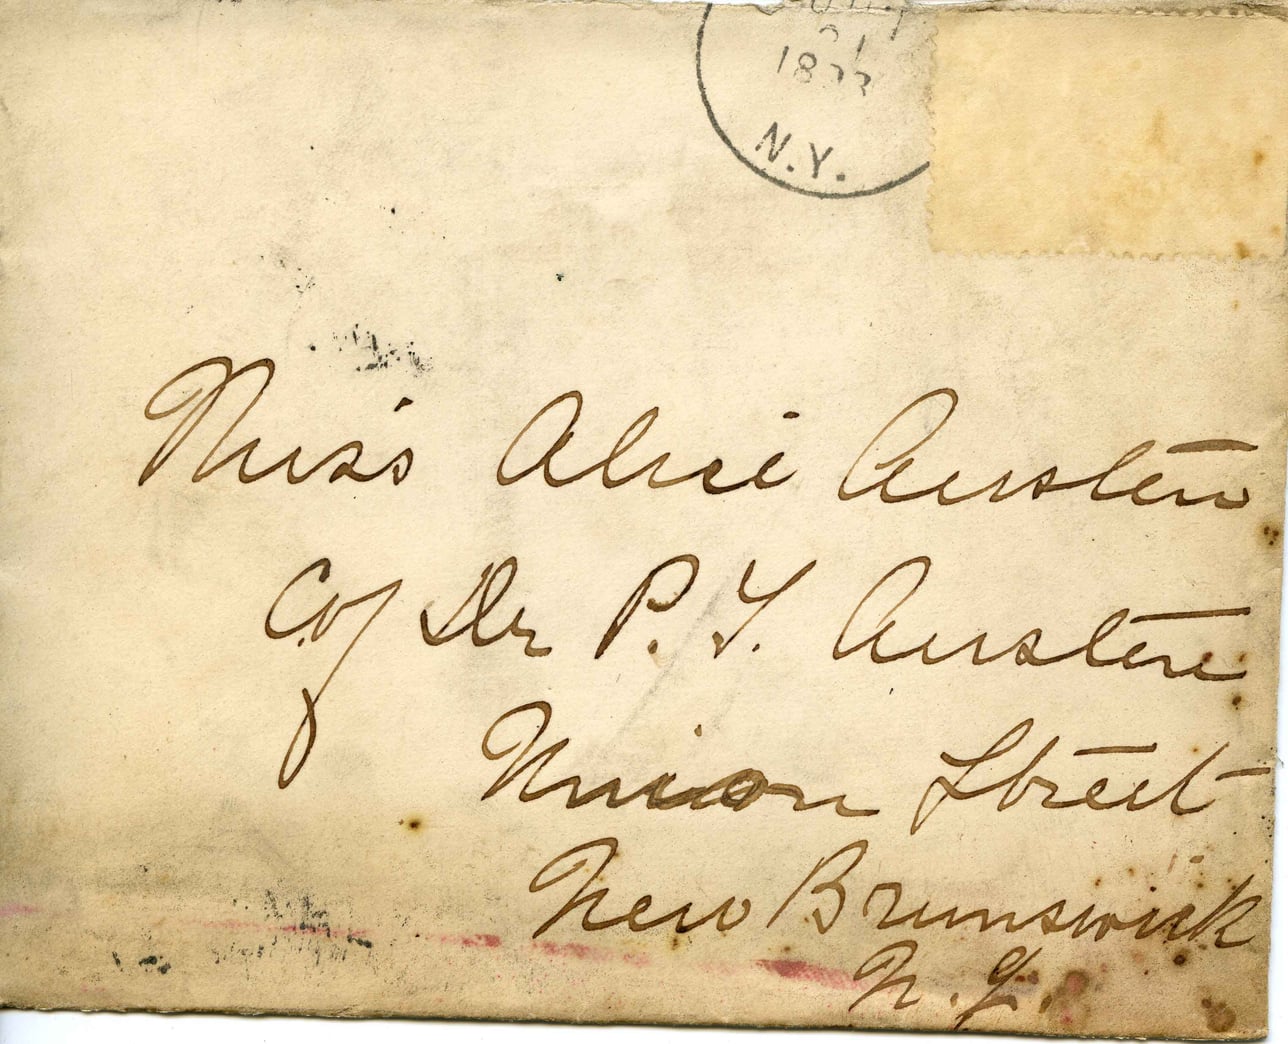 21
N.Y.
Miss Alice Austen
C/o Dr P. T. Austen
Union Street
New Brunswick
N. J.